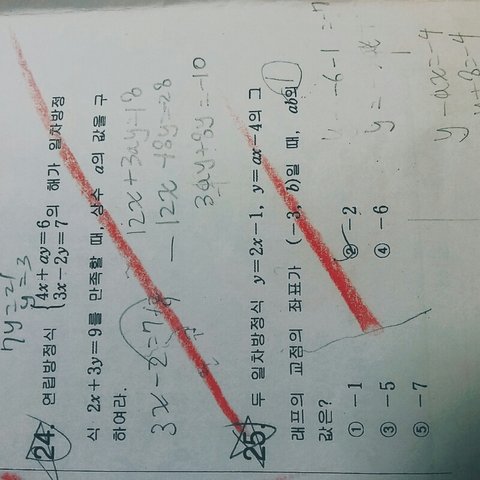 7y=21
y=3
24. 연립방정식 {4x+ay=6, 3x-2y=7의 해가 일차방정
식 2x+3y=9를 만족할 때, 상수 a의 값을 구
하여라.
12x+3ay=18
12x-8y=28
3ay+8y=-10
25. 두 일차방정식 y=2x-1, y=ax-4의 그
래프의 교점의 좌표가 (-3, b)일 때, ab의
값은?
① -1
② -2
③ -5
④ -6
⑤ -7
-6-1=-7
y-ax=-4